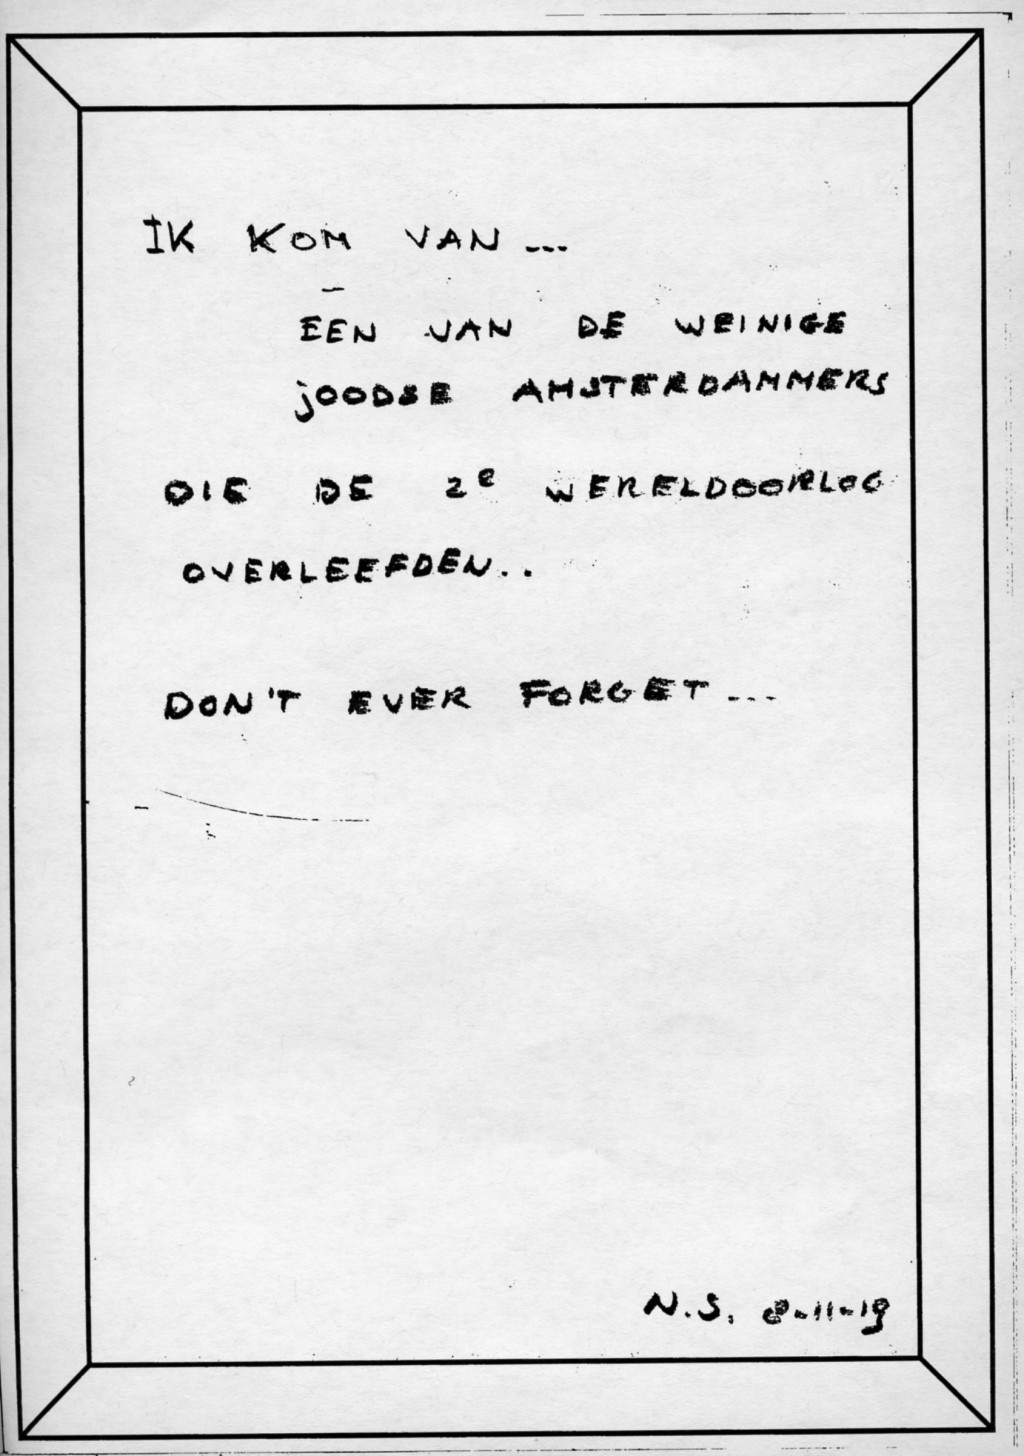 IK KOM VAN ...
EEN VAN DE WEINIGE
JOODSE AMSTERDAMMERS
DIE DE 2e WERELDOORLOG
OVERLEEFDEN..
DON'T EVER FORGET ...
N.S. 8-11-19